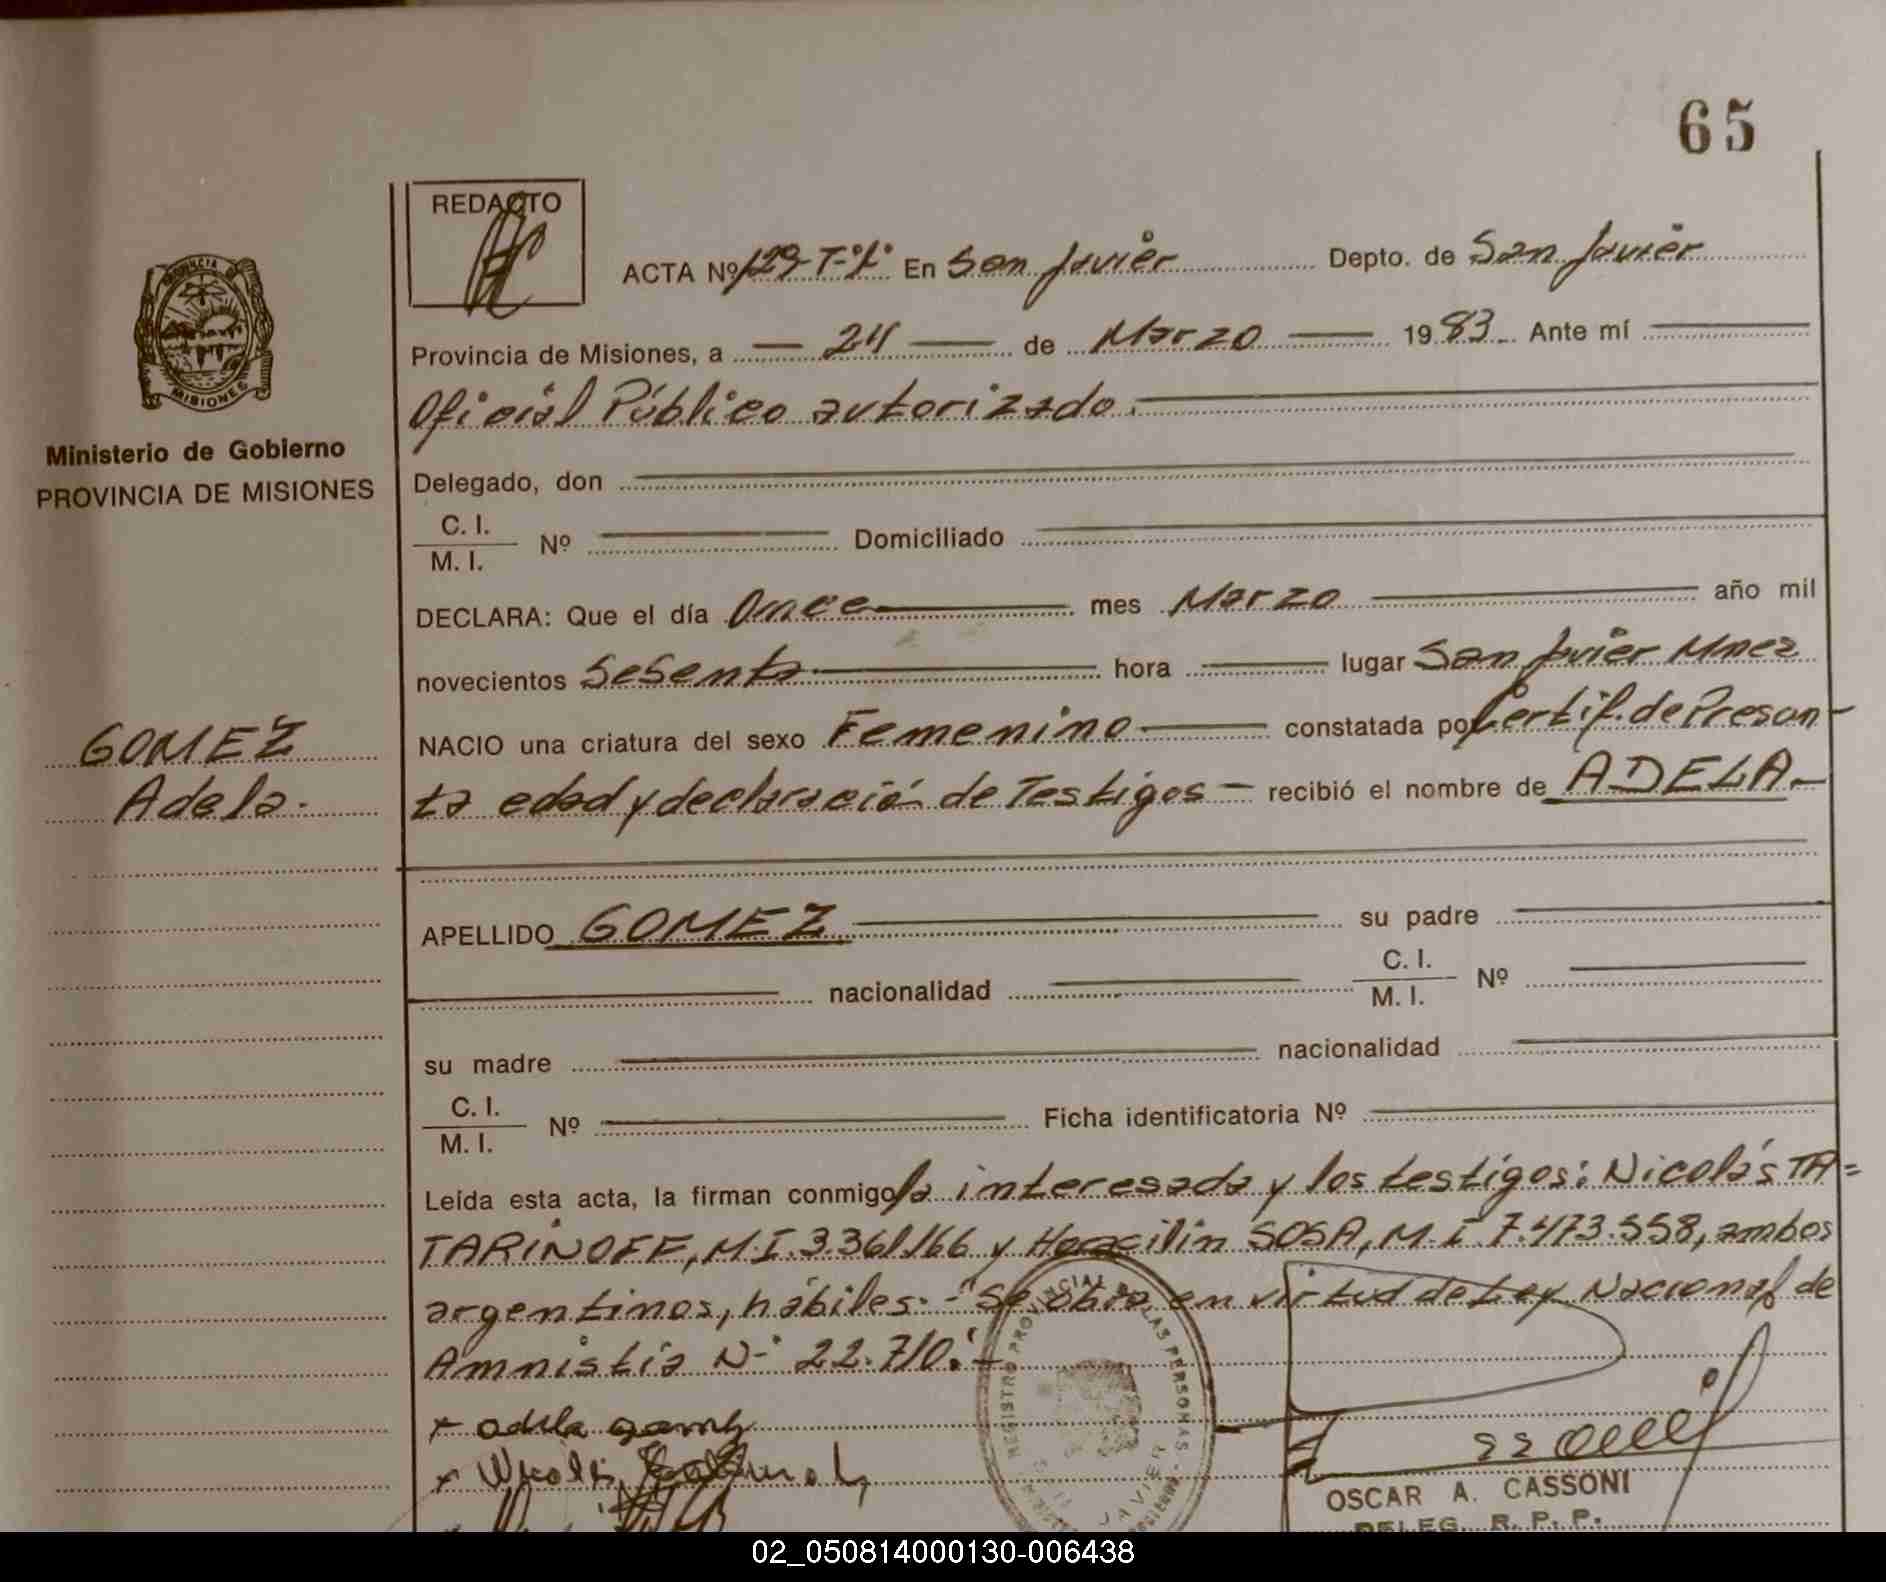 65
REDACTO
ACTA Nº 129-T-º1º En San Javier Depto. de San Javier
PROVINCIA DE
MISIONES
Provincia de Misiones, a — 24 — de Marzo — 1983. Ante mí
Oficial Público autorizado.
Ministerio de Gobierno
PROVINCIA DE MISIONES
Delegado, don
C. I.
M. I. Nº Domiciliado
DECLARA: Que el día Once mes Marzo año mil
novecientos Sesenta hora lugar San Javier Mnes
GOMEZ
NACIO una criatura del sexo Femenino constatada por Certif. de Presun-
Adela.
ta edad y declaració de Testigos — recibió el nombre de ADELA.-
APELLIDO GOMEZ su padre
nacionalidad C. I.
M. I. Nº
su madre nacionalidad
C. I.
M. I. Nº Ficha identificatoria Nº
Leída esta acta, la firman conmigo la interesada y los testigos: Nicolás TA=
TARINOFF, M.I. 3.361.166 y SOSA, M.I. 7.473.558, ambos
argentinos, hábiles.- Se obra en virtud de Ley Nacional de
Amnistía Nº 22.710.-
+ adela gomez
+ Nicolas
REGISTRO PROVINCIAL DE LAS PERSONAS
JAVIER
OSCAR A. CASSONI
DELEG. R. P. P.
02_050814000130-006438